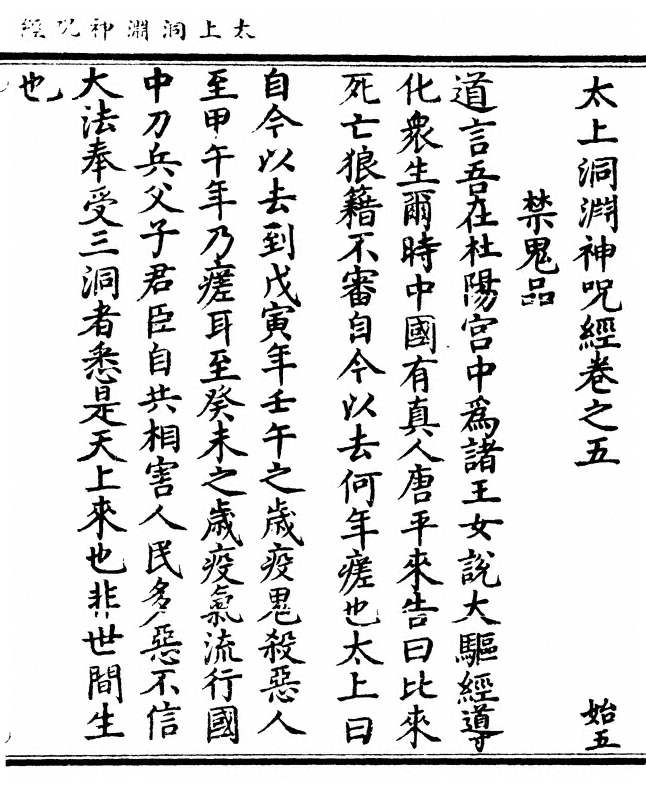 太上洞淵神咒經
太上洞淵神咒經卷之五
始五
禁鬼品
道言吾在杜陽宮中爲諸王女說大驅經導
化衆生爾時中國有真人唐平來告曰比來
死亡狼籍不審自今以去何年瘥也太上曰
自今以去到戊寅年壬午之歲疫鬼殺惡人
至甲午年乃瘥耳至癸未之歲疫氣流行國
中刀兵父子君臣自共相害人民多惡不信
大法奉受三洞者悉是天上來也非世間生
也